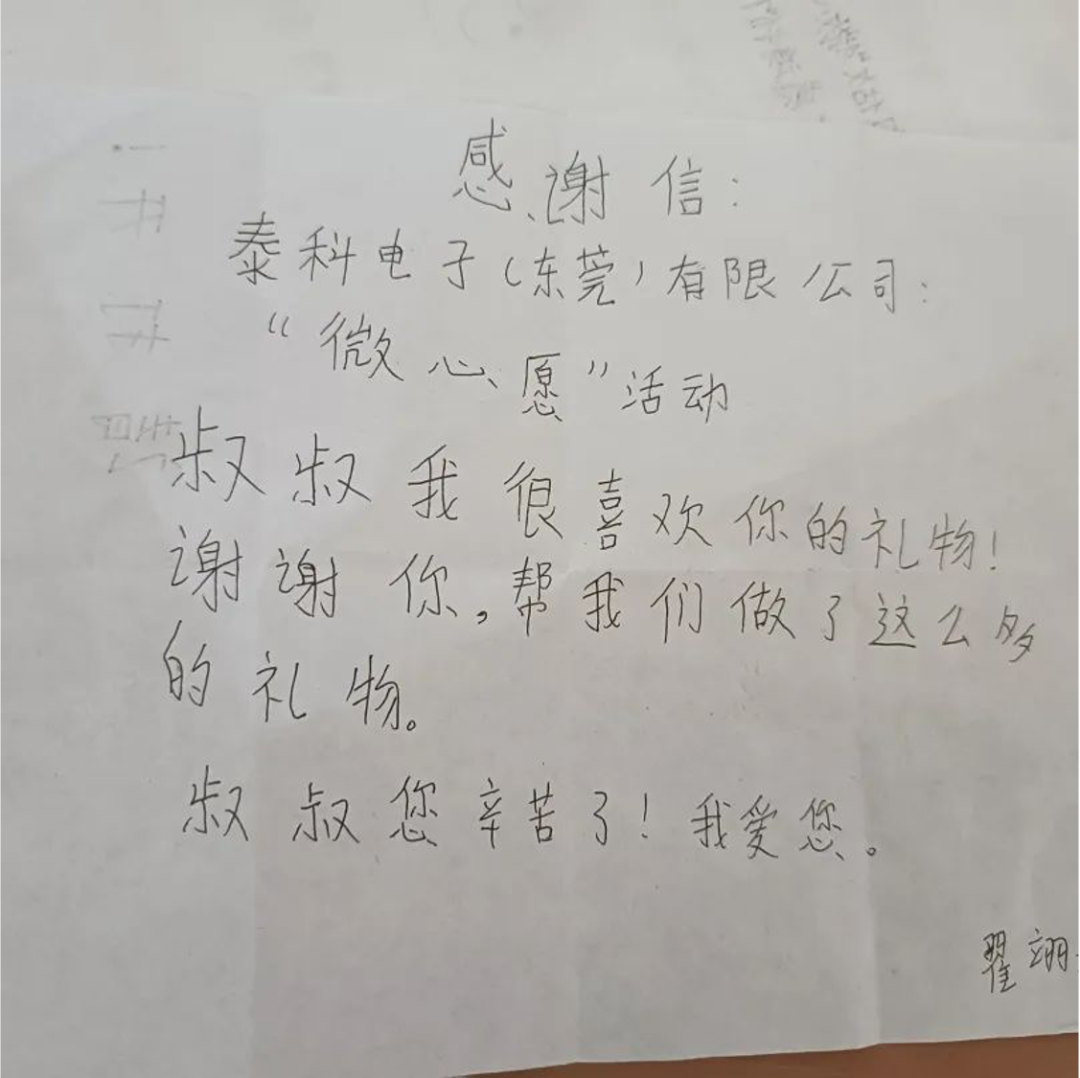 感谢信:
泰科电子(东莞)有限公司:
“微心愿”活动
叔叔我很喜欢你的礼物!
谢谢你,帮我们做了这么多
的礼物。
叔叔您辛苦了!我爱您。
翟翊